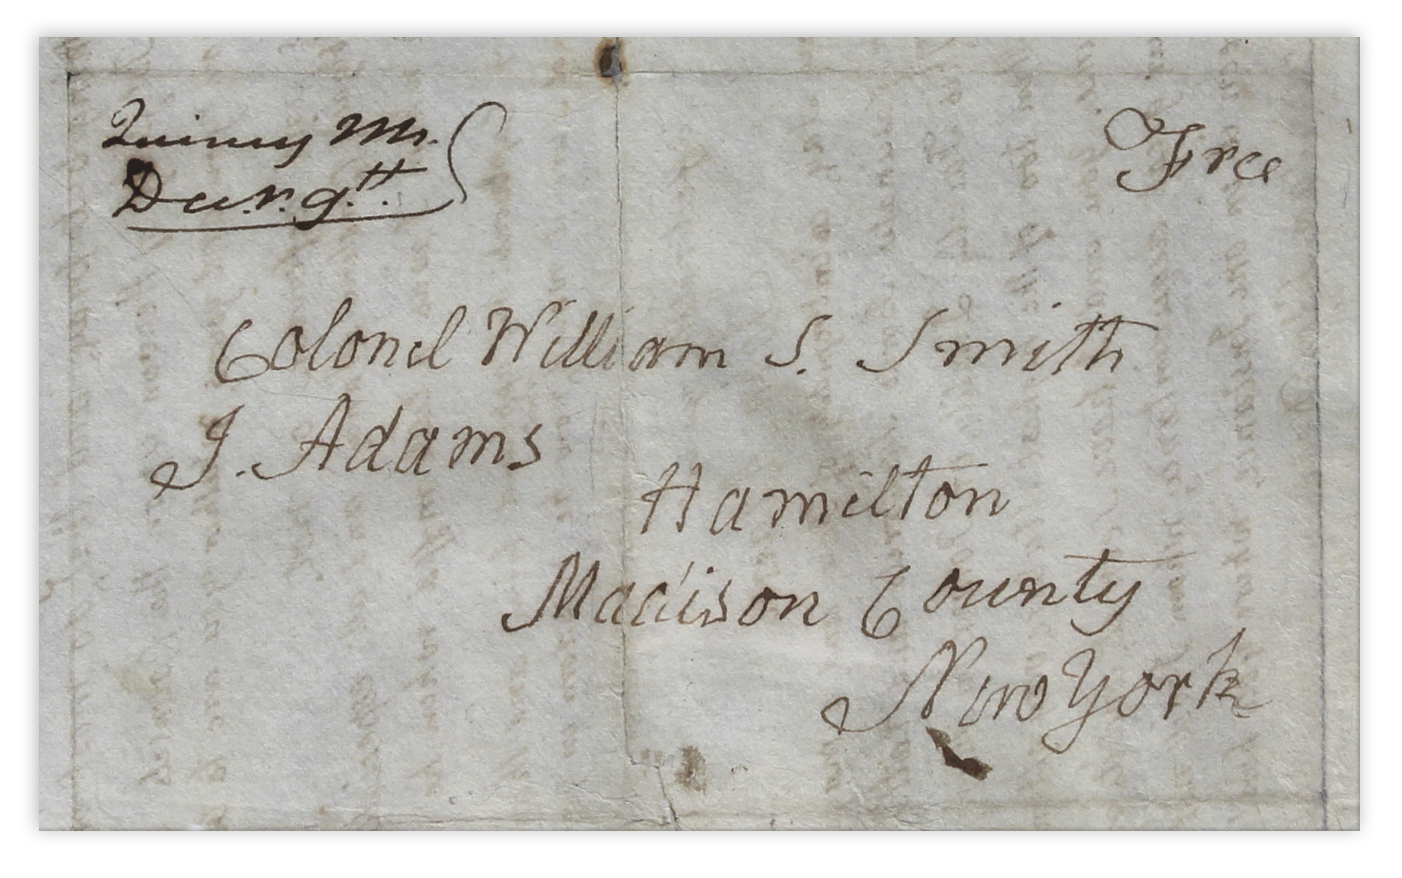 Quincy Ms.
Decr. 9th.
Free
Colonel William S. Smith
J. Adams
Hamilton
Madison County
New York